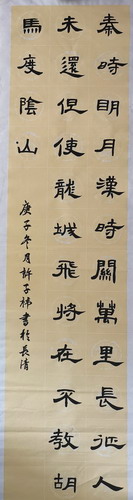 秦時明月漢時關萬里長征人
未還但使龍城飛將在不教胡
馬度陰山
庚子冬月許子梯書於長清